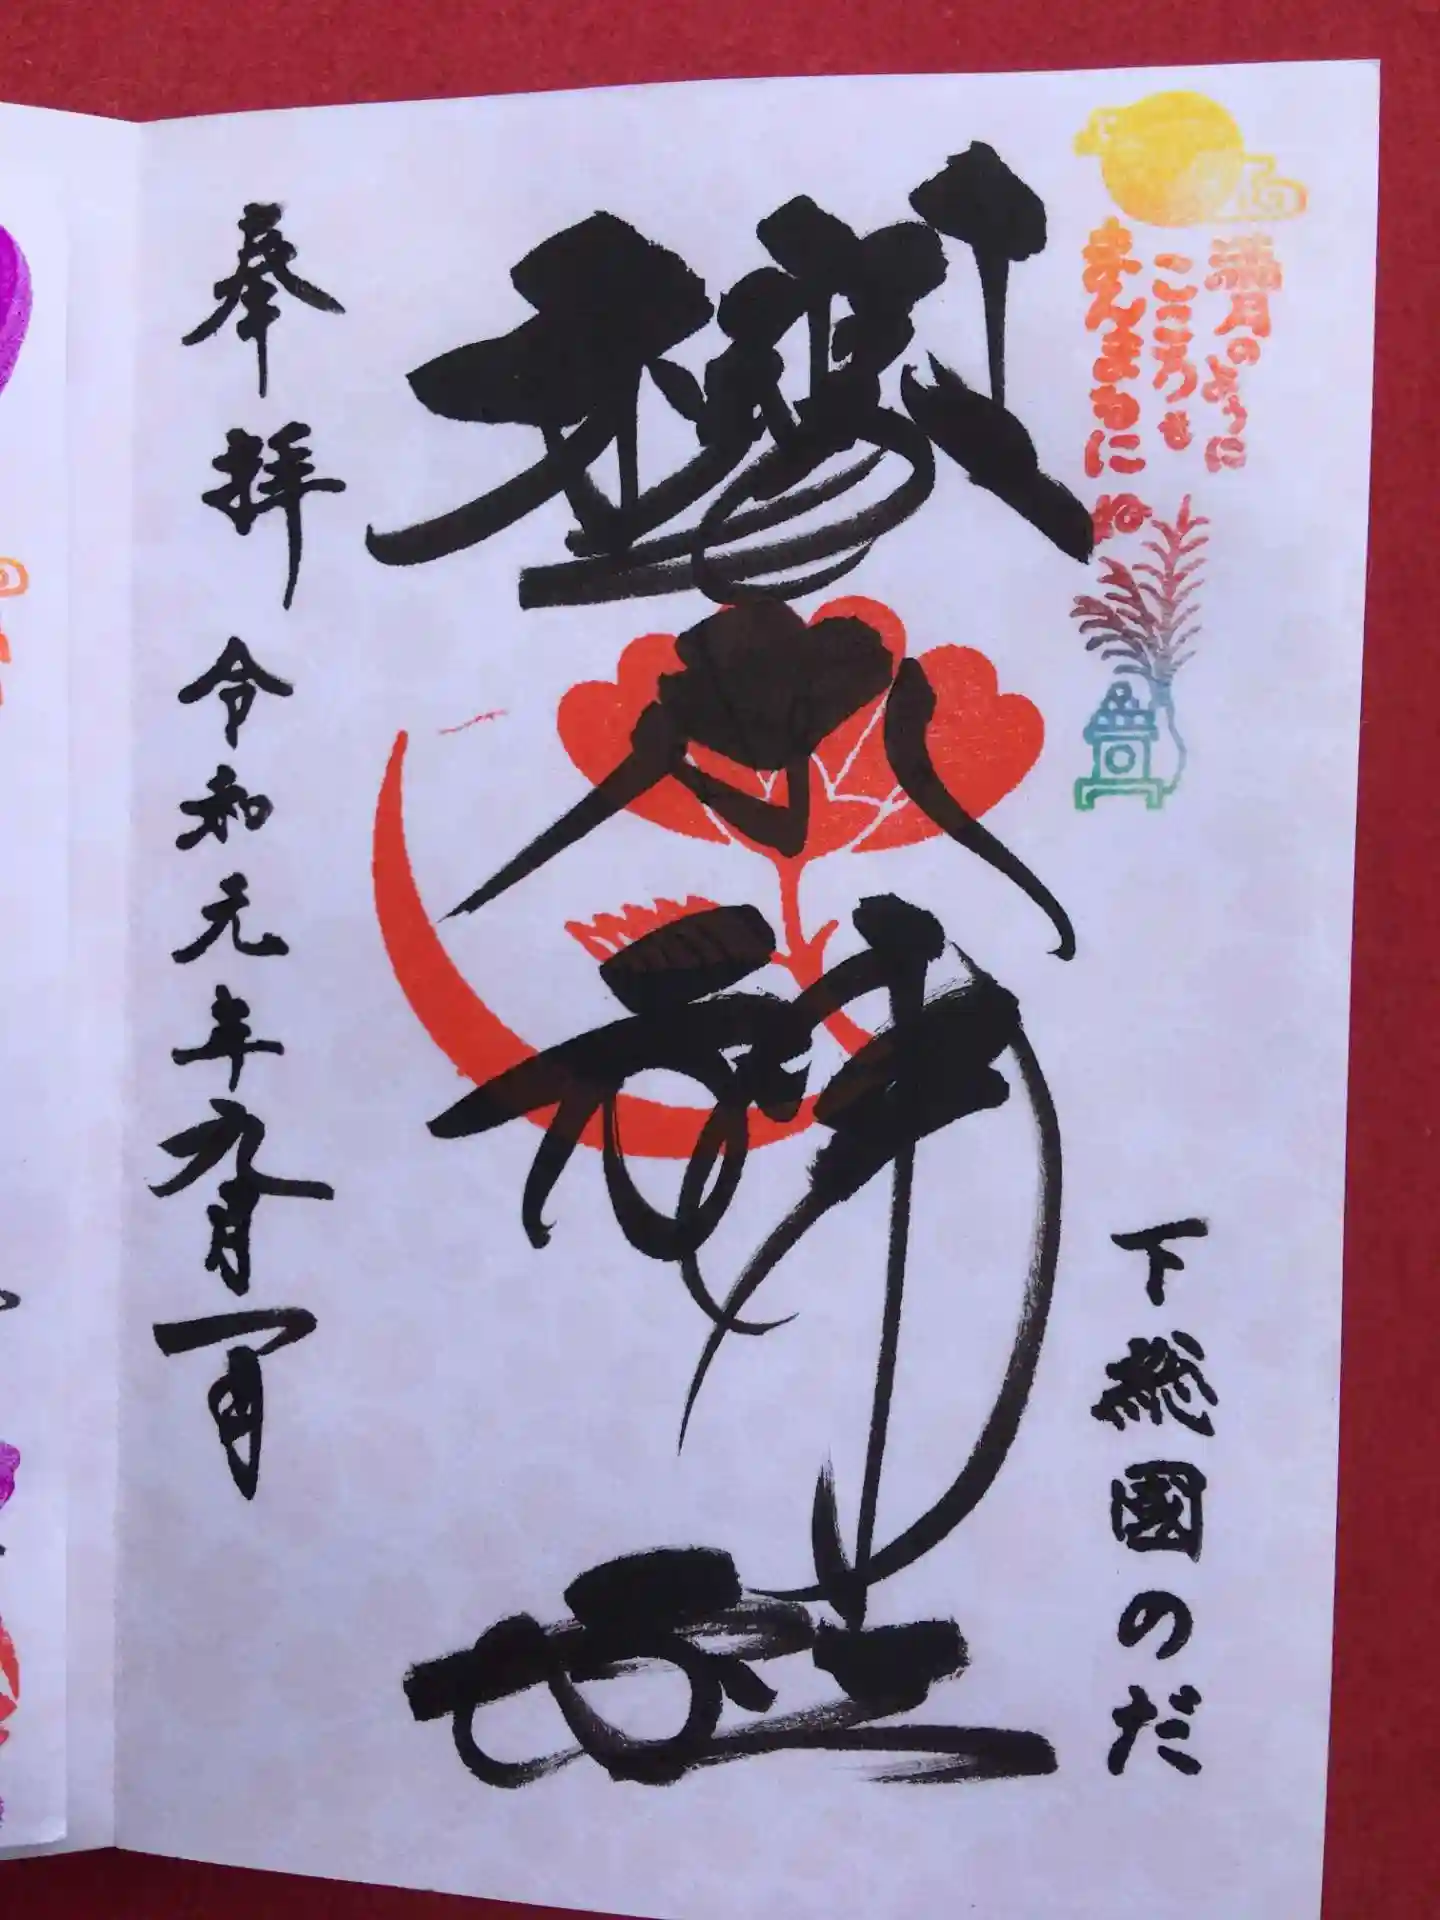 満月のように
こころも
まんまるにね
下総國のだ
櫻木神社
奉拝 令和元年九月一日